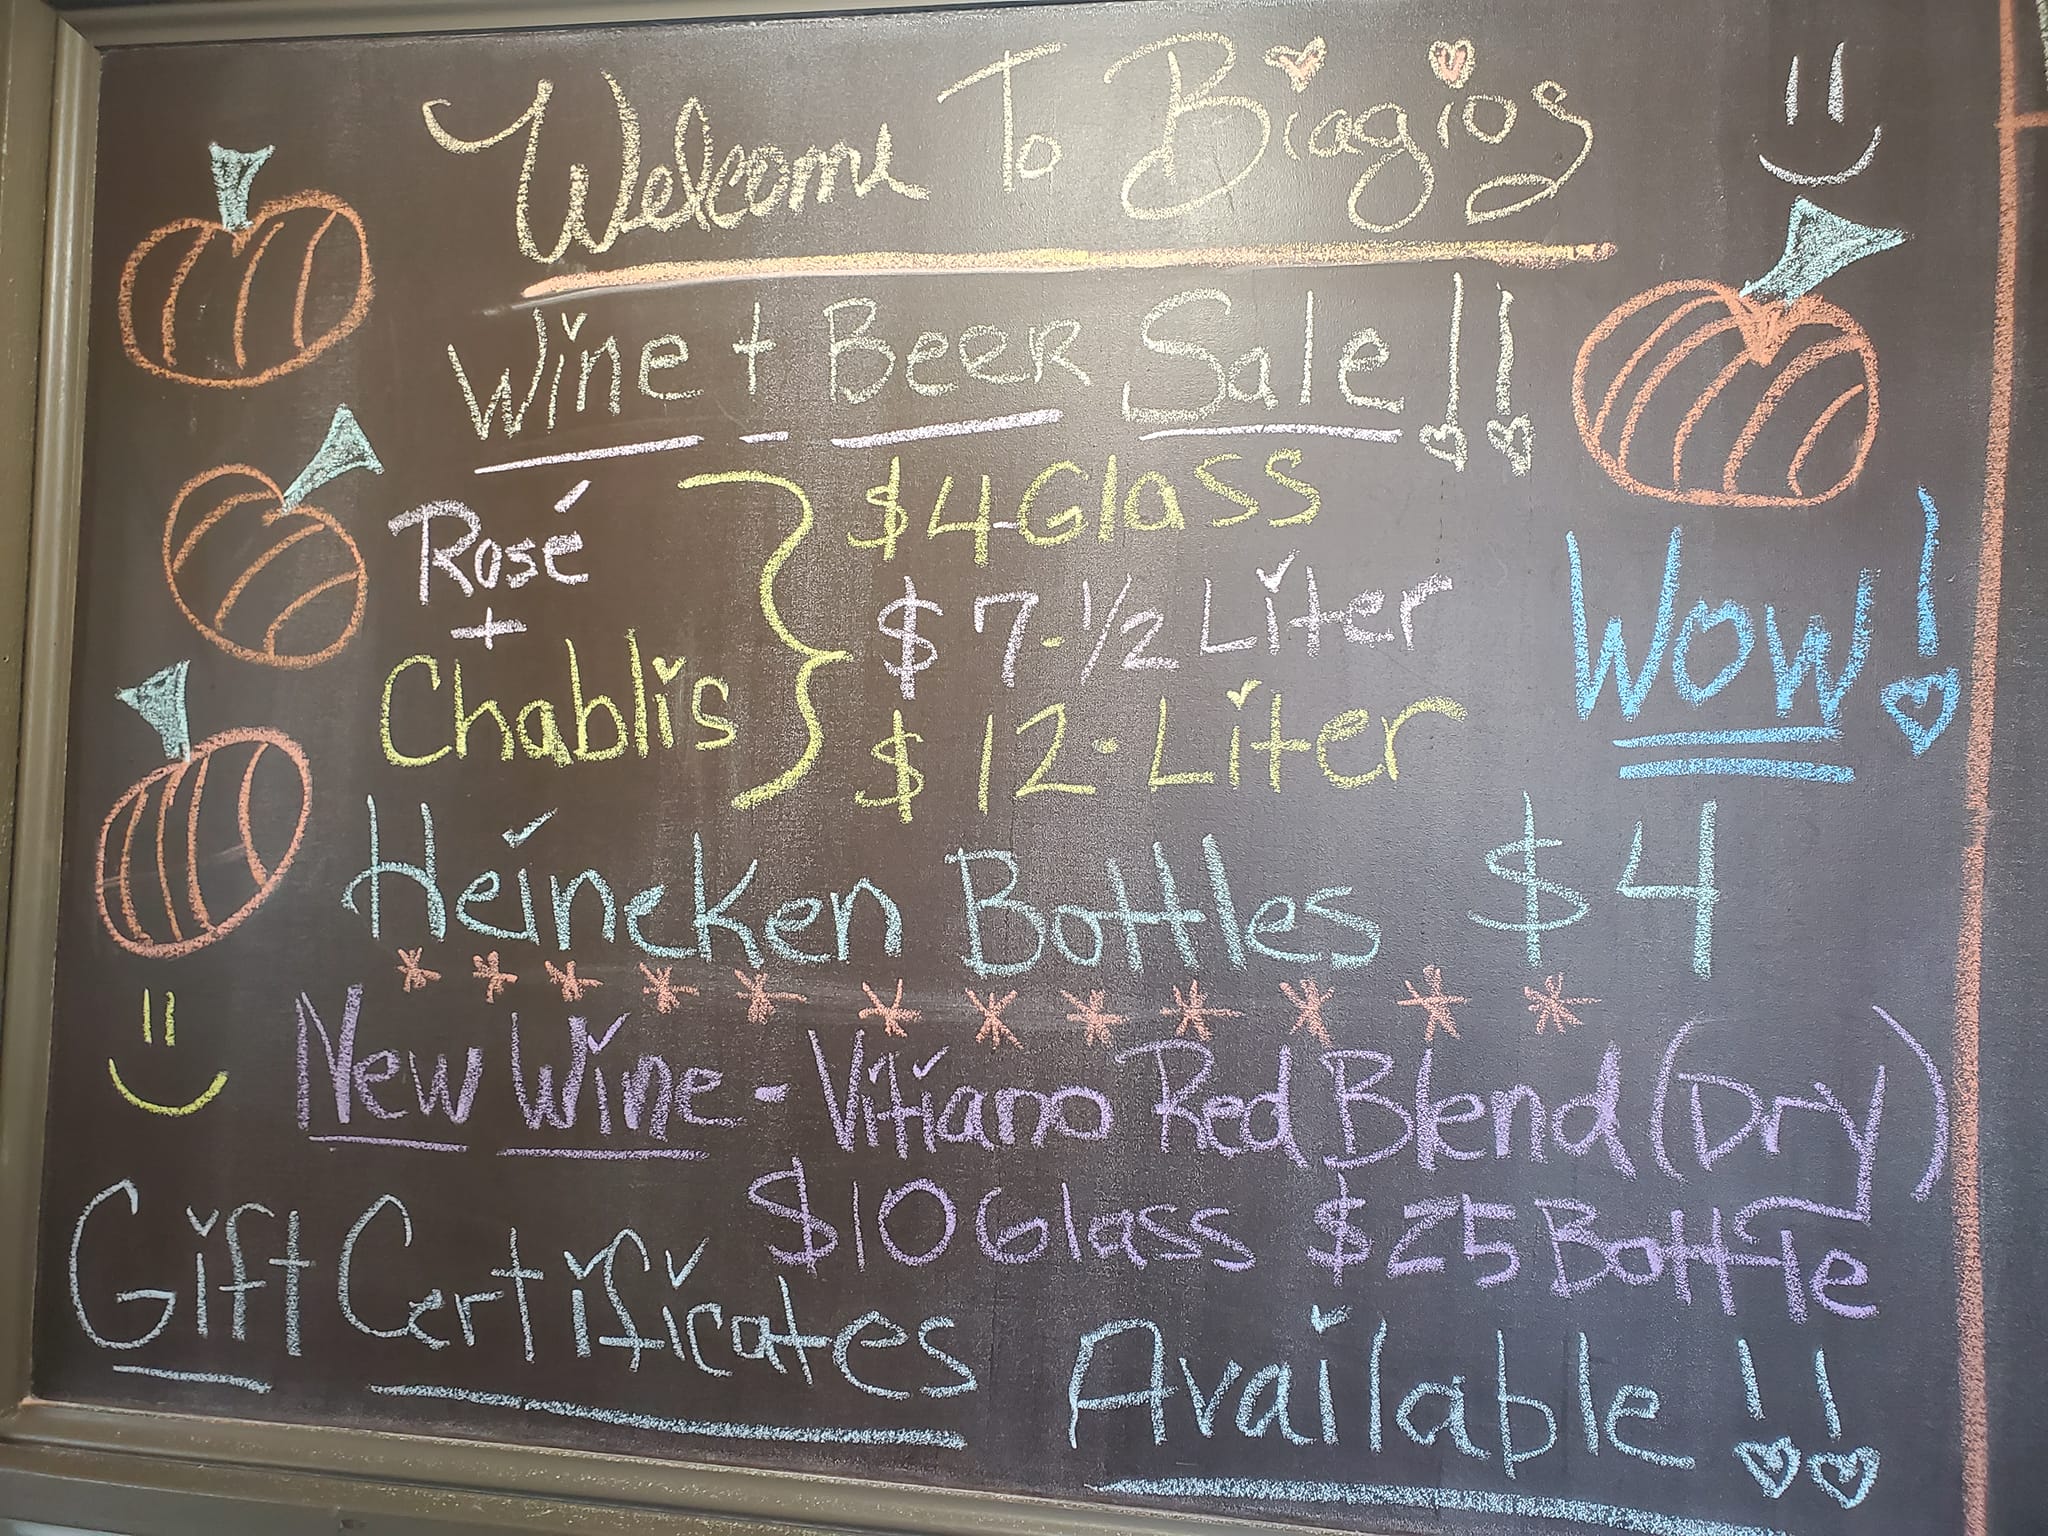 Welcome To Biagios
Wine + Beer Sale!!
Rosé
+
Chablis
$4-Glass
$7-1/2 Liter
$12-Liter
Wow!
Heineken Bottles $4
* * * * * * * * * * * *
New Wine - Vitiano Red Blend (Dry)
$10 Glass $25 Bottle
Gift Certificates Available!!